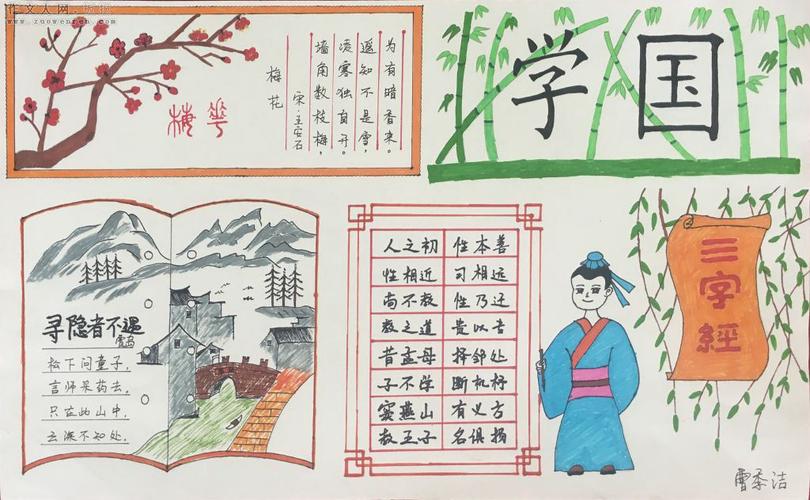 作文人网
梅花
梅花
宋·王安石
墙角数枝梅，
凌寒独自开。
遥知不是雪，
为有暗香来。
国学
寻隐者不遇
贾岛
松下问童子，
言师采药去，
只在此山中，
云深不知处。
人之初 性本善
性相近 习相远
苟不教 性乃迁
教之道 贵以专
昔孟母 择邻处
子不学 断机杼
窦燕山 有义方
教五子 名俱扬
三字經